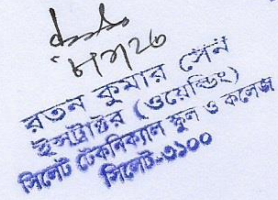 রতন কুমার সেন
ইন্সট্রাক্টর (ওয়েল্ডিং)
সিলেট টেকনিক্যাল স্কুল ও কলেজ
সিলেট-৩১০০